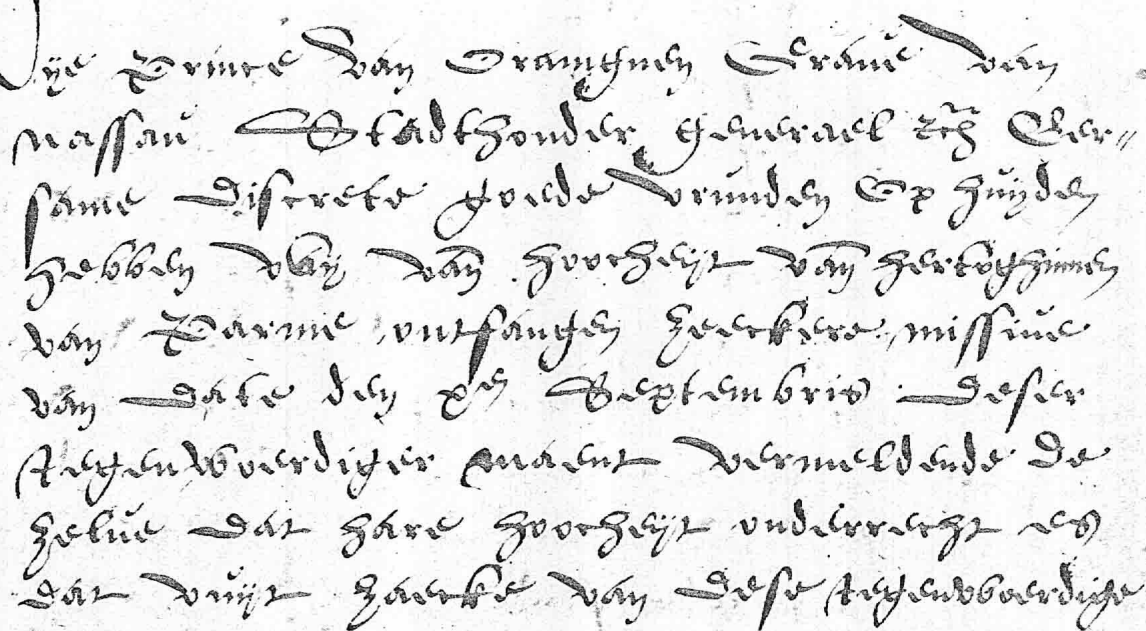 Dye Prince van Oraingnen Grave van
nassau Stadthouder generael etc̃ Eer-
same discrete goede vrunden Op huyden
hebben wy van hoocheyt van hertoghinnen
van Parme ontfangen zeeckere missive
van date den xen Septembris deser
tegenwoerdiger maent vermeldende de
zelve dat hare hoocheyt onderrecht es
dat vuyt zaecke van dese tegenwoerdige